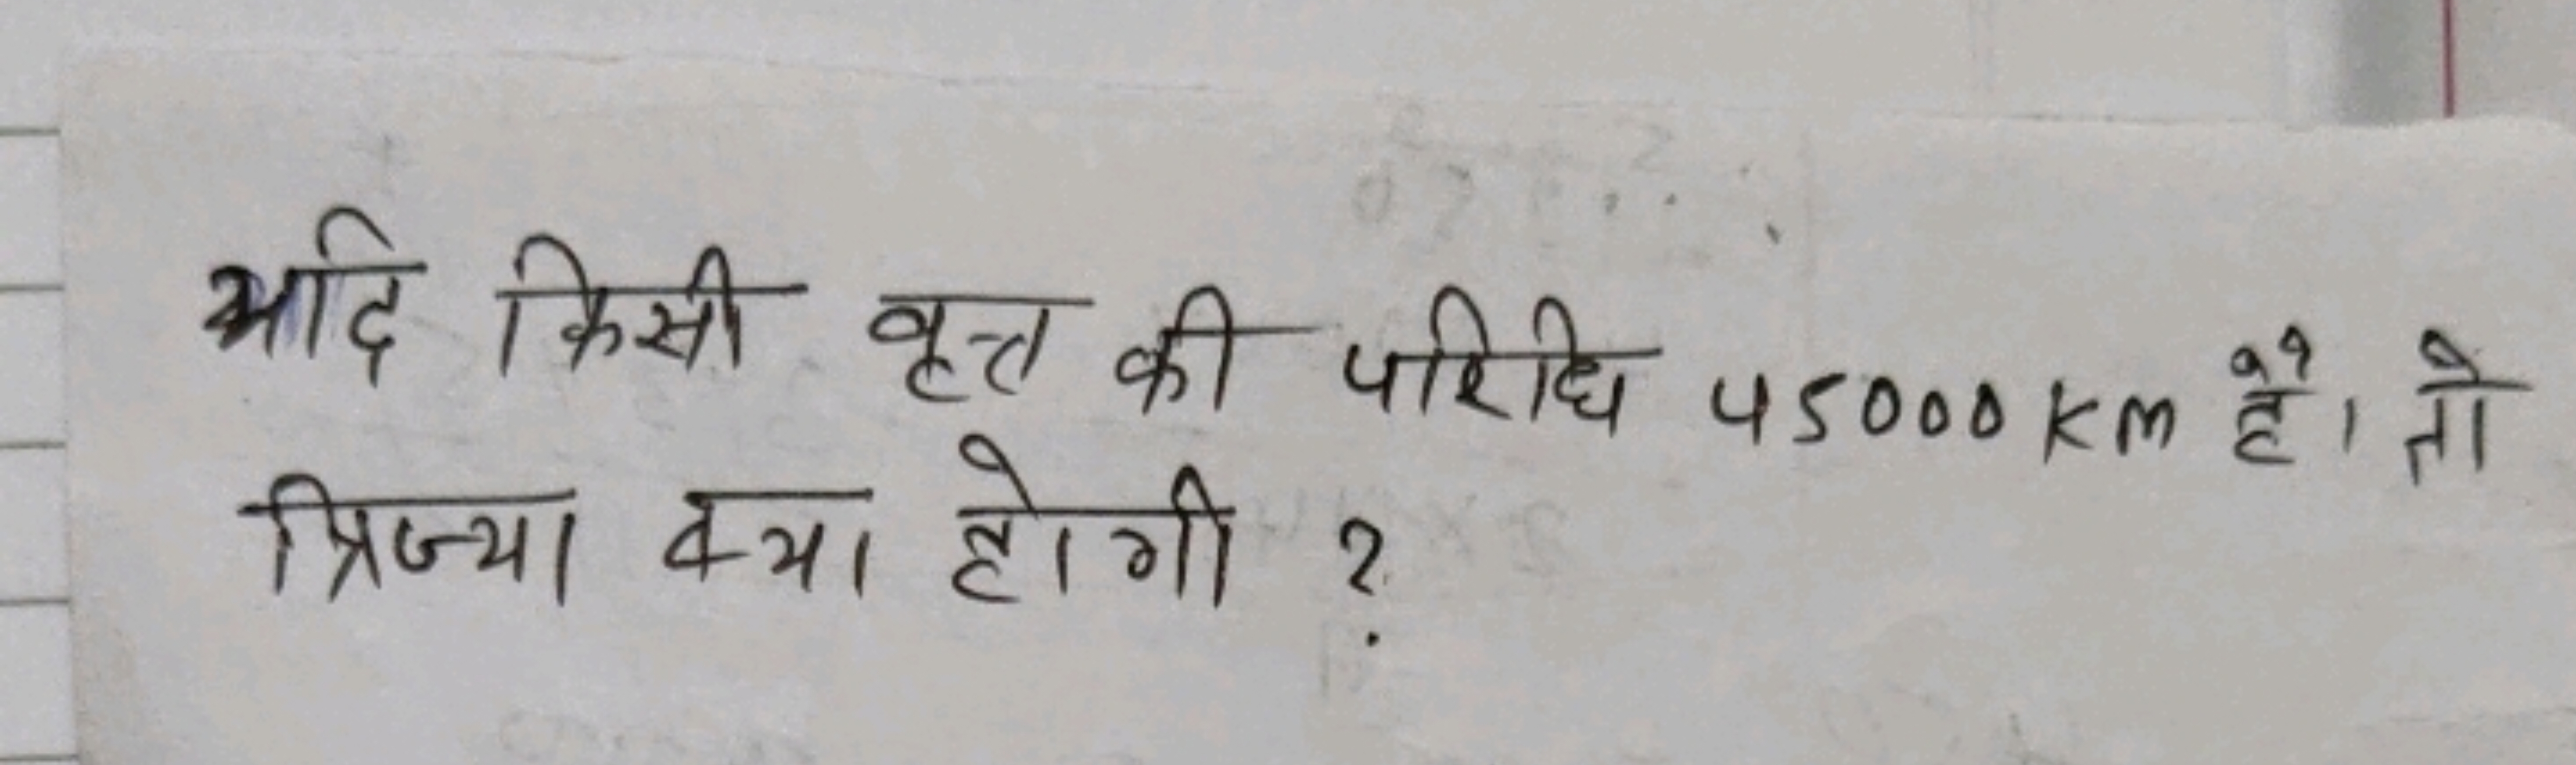 यदि किसी वृत्त की परिधि 45000 km हैं। तो
त्रिज्या क्या होगी ?